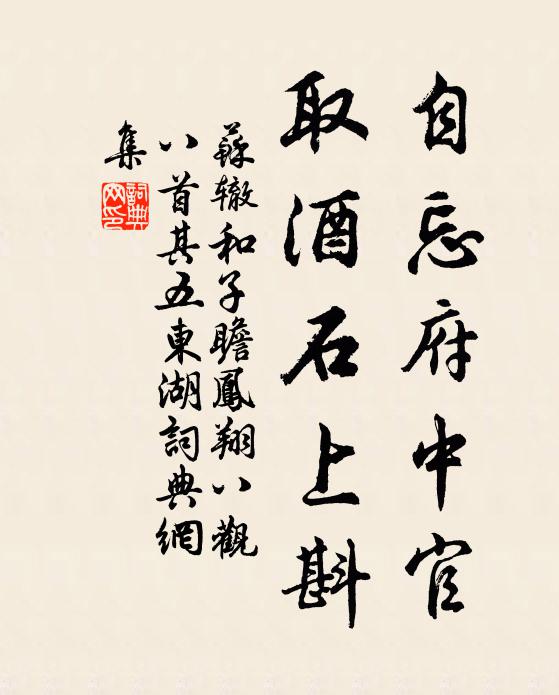 自忘府中官
取酒石上斟
蘇辙和子瞻鳳翔八觀
八首其五東湖詞典網
集
詞典
网印